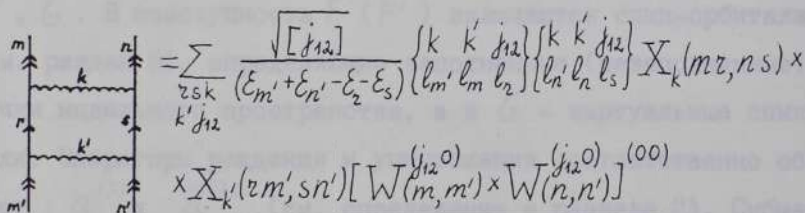 m n
k
r s
k'
m' n'
-∑ √[j₁₂] / (ε_m' + ε_n' - ε_r - ε_s) {k k' j₁₂ / l_m' l_m l_r} {k k' j₁₂ / l_n' l_n l_s} X_k(mr, ns) ×
rsk
k'j₁₂
× X_k'(rm', sn') [W^(j₁₂0)(m, m') × W^(j₁₂0)(n, n')]^(00)